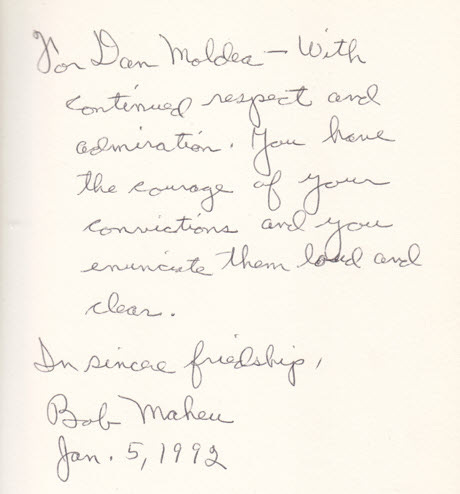 For Dan Moldea - With
continued respect and
admiration. You have
the courage of your
convictions and you
enunciate them loud and
clear.
In sincere friedship,
Bob Maheu
Jan. 5, 1992